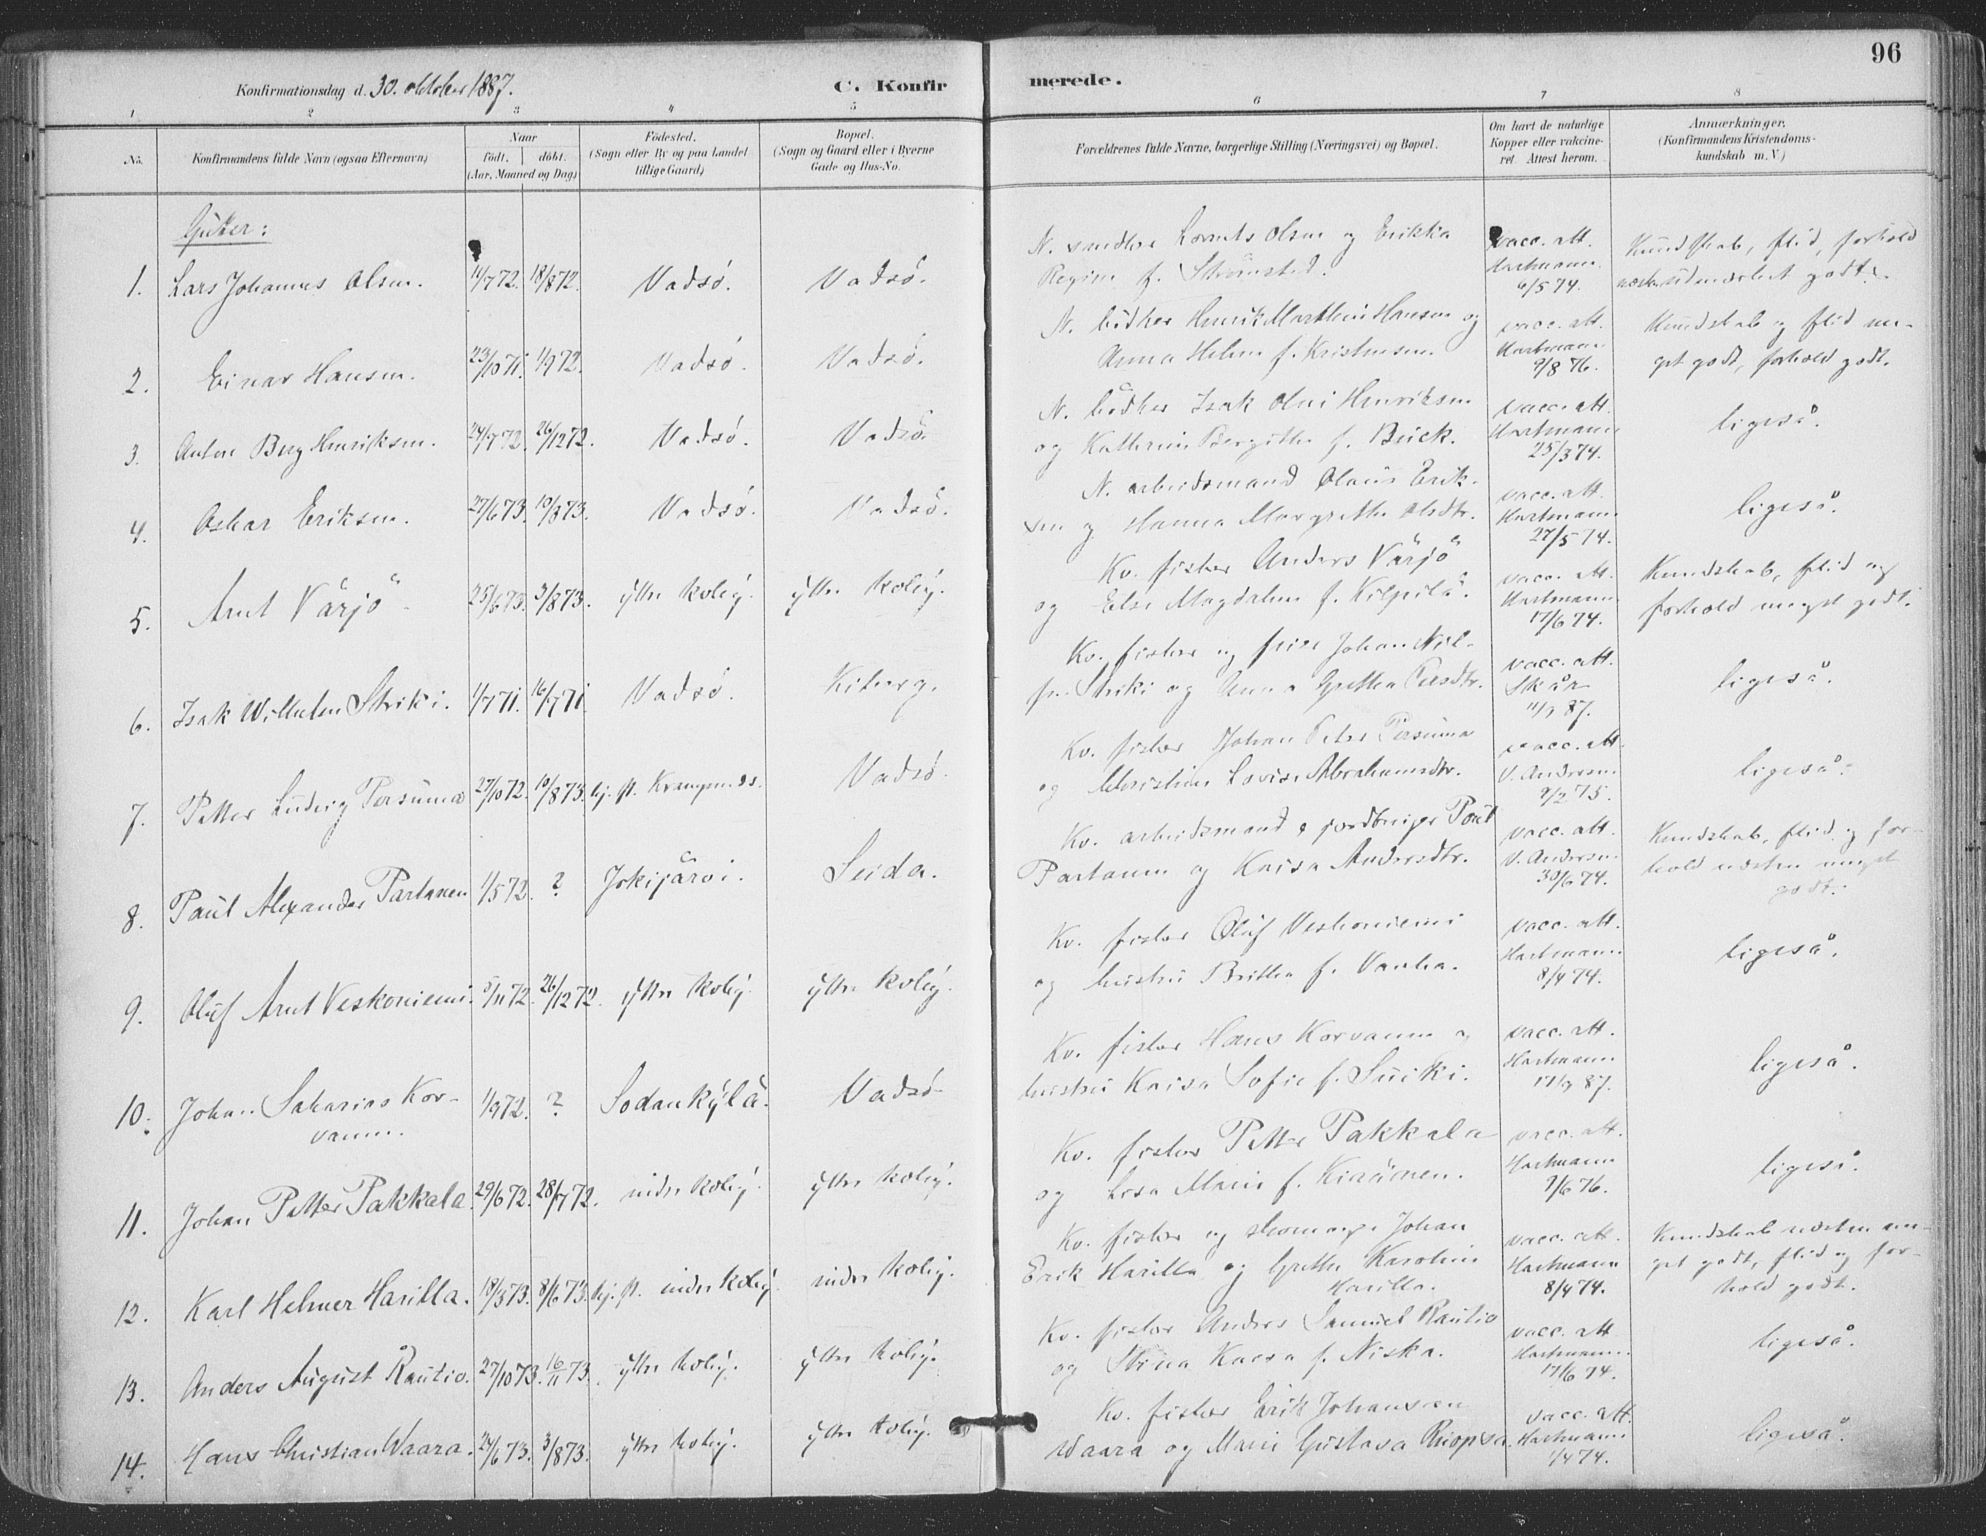 96
Konfirmationsdag d. 30. oktober 1887.
C. Konfirmerede.
1 2 3 4 5 6 7 8
No.
Konfirmandens fulde Navn (ogsaa Efternavn)
Naar
født. døbt.
(Aar, Maaned og Dag)
Fødested.
(Sogn eller By og paa Landet
tillige Gaard)
Bopæl.
(Sogn og Gaard eller i Byerne
Gade og Hus-No.
Forældrenes fulde Navne, borgerlige Stilling (Næringsvei) og Bopæl.
Om havt de naturlige
Kopper eller vakcine-
ret Attest herom.
Anmærkninger,
(Konfirmandens Kristendoms-
kundskab m. V.)
Gutter:
1. Lars Johannes Olsen. 11/7 72. 18/8 72. Vadsö. Vadsö.
N. snedker Lorents Olsen og Erikka
Regine f. Strömsted.
vacc. att.
Hartmann.
6/5 74.
Kundskab, flid, forhold
godt.
2. Einar Hansen. 23/10 71. 1/9 72. Vadsö. Vadsö.
N. bödker Henrik Marthin Hansen og
Anna Helene f. Kristensen.
vacc. att.
Hartmann
9/8 76.
Kundskab og flid me-
get godt, forhold godt.
3. Anton Berg Henriksen. 24/7 72. 26/12 72. Vadsö. Vadsö.
N. bödker Isak Olai Henriksen
og Kathrine Bergithe f. Beück.
vacc. att.
Hartmann
25/3 74.
ligeså.
4. Oskar Eriksen. 27/6 73. 10/8 73. Vadsö. Vadsö.
N. arbeidsmand Olaus Erik-
sen og Hanna Margrethe Olsdtr.
vacc. att.
Hartmann
27/5 74.
ligeså.
5. Arnt Värjö 25/6 73. 3/8 73. yttre Kvbÿ. yttre Kvbÿ.
Kv. fisker Anders Värjö
og Else Magdalene f. Kilpilä.
vacc. att.
Hartmann.
17/6 74.
Kundskab, flid og
forhold meget godt.
6. Isak Wilhelm Striki. 1/7 71. 16/7 71. Vadsö. Kiberg.
Kv. fisker og Johan
Striki og Anna Grethe Persdtr.
vacc. att.
Skår
11/9 87.
ligeså.
7. Petter Ludvig Persuma 27/10 72. 10/8 73. hj. st. Krampenes. Vadsö.
Kv. fisker Johan Peter Persuma
og Christine Lovise Abrahamsdtr.
vacc. att.
V. Andersen
9/2 75.
ligeså.
8. Paul Alexander Partanen 1/5 72. ? Jokijärvi. Seida.
Kv. arbeidsmand & jordbruger Paul
Partanen og Kaisa Andersdtr.
vacc. att.
V. Andersen
30/6 74.
Kundskab, flid og for-
hold næsten meget
godt.
9. Oluf Arnt Veskoniemi. 5/11 72. 26/12 72. yttre Kvbÿ. yttre Kvbÿ.
Kv. fisker Oluf Veskoniemi
og hustru Britha f. Vanha.
vacc. att.
Hartmann.
8/4 74.
ligeså.
10. Johan Sakarias Kor-
vanen. 1/9 72. ? Sodankÿlä. Vadsö.
Kv. fisker Hans Korvanen og
hustru Kaisa Sofie f. Suiki.
vacc. att.
Hartmann
17/9 87.
ligeså.
11. Johan Petter Pakkala. 29/6 72. 28/7 72. indre Kvbÿ. yttre Kvbÿ.
Kv. fisker Petter Pakkala
og Lisa Marie f. Kinänen.
vacc. att.
Hartmann
7/6 76.
ligeså.
12. Karl Helmer Harilla. 18/3 73. 8/6 73. hj. st. indre Kvbÿ. indre Kvbÿ.
Kv. fisker og skomager Johan
Erik Harilla og Grethe Karoline
Harilla.
vacc. att.
Hartmann
8/4 74.
Kundskab næsten me-
get godt, flid og for-
hold godt.
13. Anders August Rautio. 27/10 73. 16/11 73. yttre Kvbÿ. yttre Kvbÿ.
Kv. fisker Anders Samuel Rautio
og Stina Kaisa f. Niska.
vacc. att.
Hartmann.
17/6 74.
ligeså.
14. Hans Christian Waara. 24/6 73. 3/8 73. yttre Kvbÿ. yttre Kvbÿ.
Kv. fisker Erik Johansen
Waara og Marie Gustava Ruopsa.
vacc. att.
Hartmann
1/4 74.
ligeså.